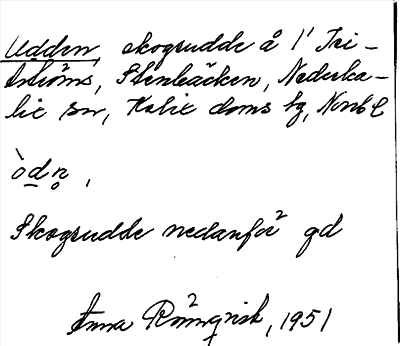 Udden, skogsudde å 1² Tri-
ströms, Stenbäcken, Nederka-
lix sn, Kalix doms hg, Nbtn
òdn̥,
Skogsudde nedanför² gd
Anna Rönnqvist, 1951